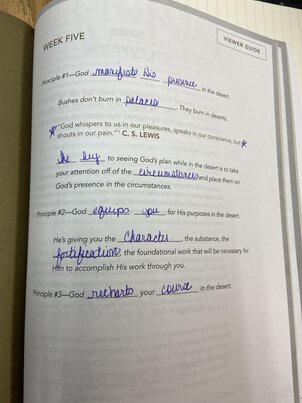 WEEK FIVE
VIEWER GUIDE
Principle #1—God manifests His presence in the desert.
Bushes don't burn in palaces. They burn in deserts.
"God whispers to us in our pleasures, speaks in our conscience, but
shouts in our pain."¹ C. S. LEWIS
The key to seeing God's plan while in the desert is to take
your attention off of the circumstances and place them on
God's presence in the circumstances.
Principle #2—God equips you for His purposes in the desert.
He's giving you the character, the substance, the
fortification, the foundational work that will be necessary for
Him to accomplish His work through you.
Principle #3—God recharts your course in the desert.